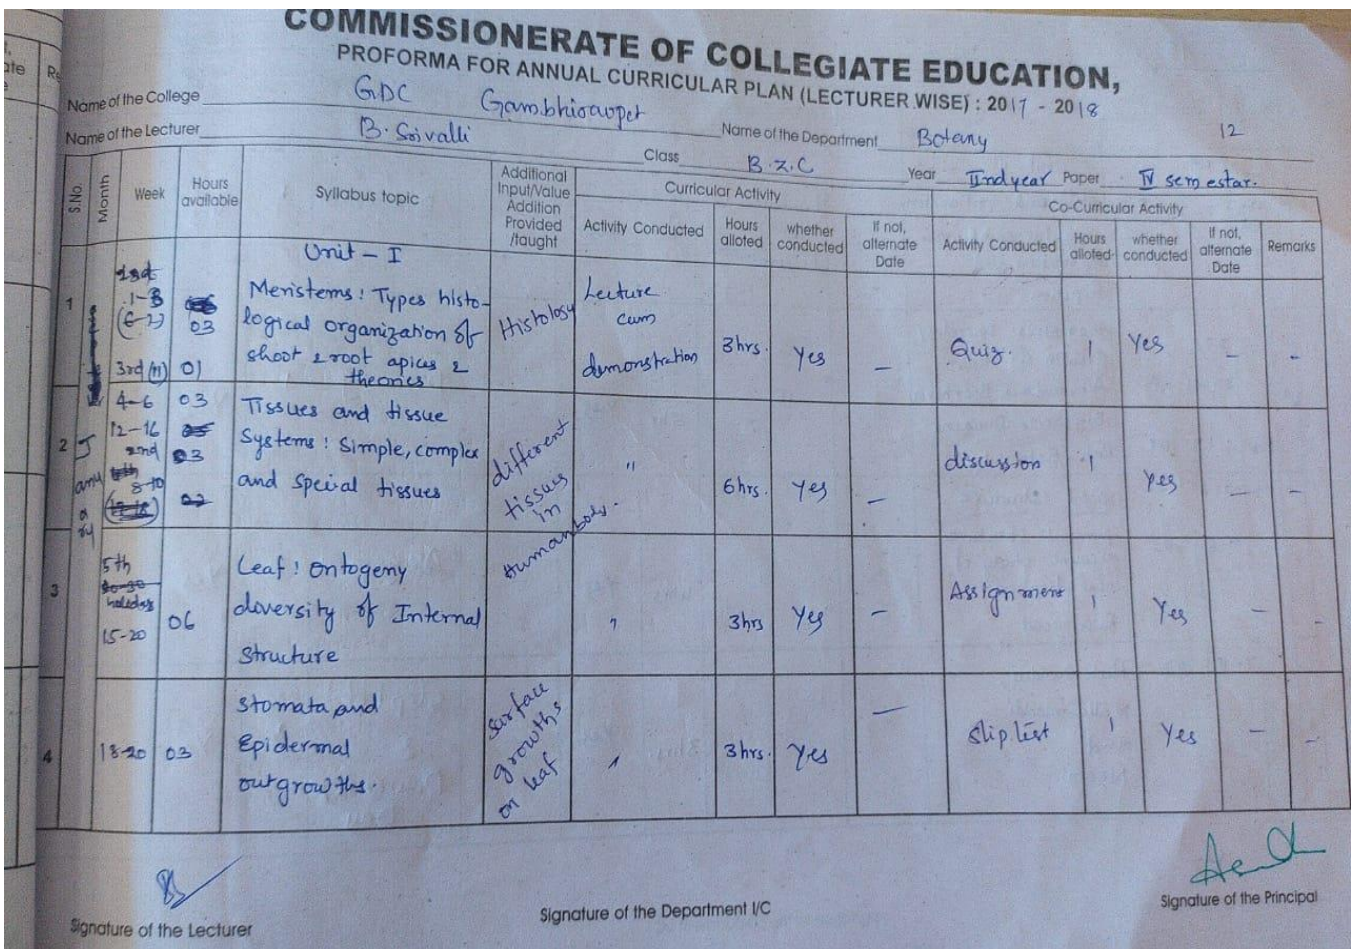 COMMISSIONERATE OF COLLEGIATE EDUCATION,
PROFORMA FOR ANNUAL CURRICULAR PLAN (LECTURER WISE) : 2017 - 2018
Name of the College GDC Gambhiraopet
Name of the Lecturer B. Srivalli Name of the Department Botany 12
Class B.Z.C Year IInd year Paper IV semestar.
S.No. Month Week Hours available Syllabus topic Additional Input/Value Addition Provided /taught Curricular Activity Co-Curricular Activity
Activity Conducted Hours alloted whether conducted If not, alternate Date Activity Conducted Hours alloted whether conducted If not, alternate Date Remarks
Unit - I
1
03
3rd (11) 01
Meristems : Types histo-
logical organization of
shoot & root apices &
theories
Histology
Lecture
cum
demonstration
3hrs. Yes – Quiz. 1 Yes – –
2
January
4-6 03
12-16
2nd 03
8-10
Tissues and tissue
Systems : Simple, complex
and special tissues
different
tissues
in
humanbody.
" 6hrs. Yes – discussion 1 Yes – –
3
5th
holidays
15-20 06
Leaf : Ontogeny
doversity of Internal
Structure
" 3hrs Yes – Assignment 1 Yes – -
4 18-20 03
Stomata and
Epidermal
outgrowths.
surface
growths
on leaf
" 3hrs. Yes – Slip test 1 Yes – –
Signature of the Lecturer
Signature of the Department I/C
Signature of the Principal